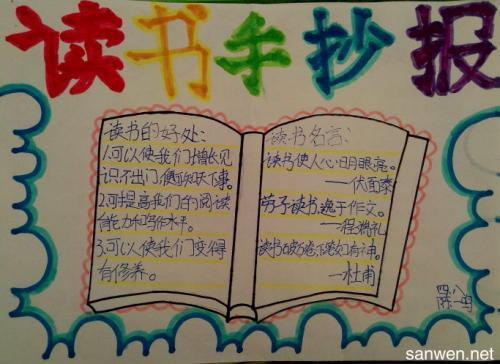 读书手抄报
读书的好处:
1.可以使我们增长见
识,不出门,便欲知天下事。
2.可提高我们的阅读
能力和写作水平。
3.可以使我们变得
有修养。
读书名言:
读书使人心明眼亮。
——伏尔泰
劳于读书,逸于作文。
——程端礼
读书破万卷,下笔如有神。
——杜甫
四.八
sanwen.net